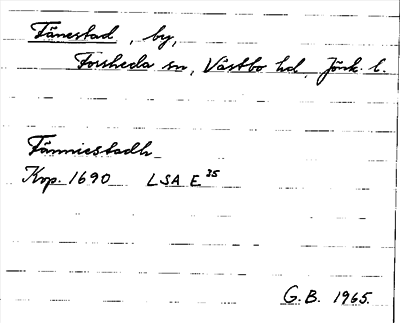 Tånestad, by,
Forsheda sn, Västbo hd, Jönk. l.
Tånniestadh
Kop. 1690 LSA E 35
G.B. 1965.